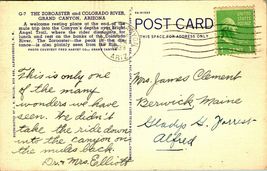 G-7 THE ZOROASTER and COLORADO RIVER,
GRAND CANYON, ARIZONA
A welcome resting place at the end of the
mule trip into the Canyon's depths over Bright
Angel Trail, where the riders dismount for
lunch and rest on the banks of the Colorado
River. The Zoroaster—the peak in the dis-
tance—is also plainly seen from the Rim.
POST CARD
THIS SPACE FOR ADDRESS ONLY
This is only one
of the many
wonders we have
seen. We didn't
take the ride down
into the canyon on
the mules back.
Dr & Mrs. Elliott
Mrs. James Clement
Berwick, Maine
Gladys G. Forrest
Alfred